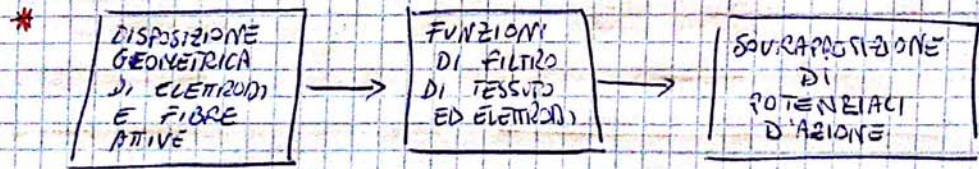 *
DISPOSIZIONE
GEOMETRICA
DI ELETTRODI
E FIBRE
ATTIVE
FUNZIONI
DI FILTRO
DI TESSUTO
ED ELETTRODI
SOVRAPPOSIZIONE
DI
POTENZIALI
D'AZIONE